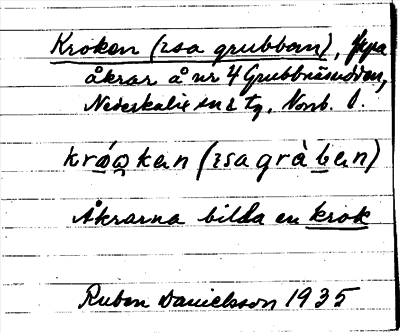 Kroken (isa grubban), fyra
åkrar å nr 4 Grubbnäsudden,
Nederkalix sn & tg, Norrb. l.
kråo̯kan (isa gràban)
Åkrarna bilda en krok
Ruben Danielsson 1935